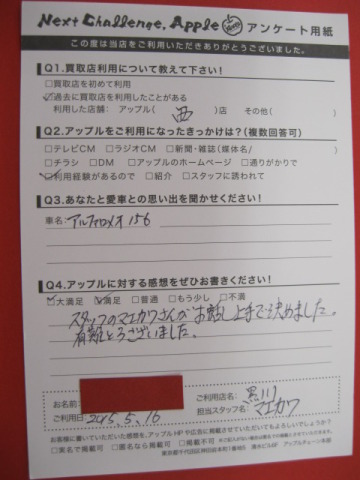 Next Challenge, Apple Newing アンケート用紙
この度は当店をご利用いただきありがとうございました。
Q1.買取店利用について教えて下さい!
□買取店を初めて利用
☑過去に買取店を利用したことがある
利用した店舗: アップル( 西 )店 その他( )
Q2.アップルをご利用になったきっかけは?(複数回答可)
□テレビCM □ラジオCM □新聞・雑誌(媒体名/ )
□チラシ □DM □アップルのホームページ □通りがかりで
☑利用経験があるので □紹介 □スタッフに誘われて
Q3.あなたと愛車との思い出を聞かせください!
車名: アルファロメオ 156
Q4.アップルに対する感想をぜひお書きください!
□大満足 ☑満足 □普通 □もう少し □不満
スタッフのマエカワさんがお話し上手で決めました。
有難とうございました。
お名前:
ご利用店名: 黒川
ご利用日: 2015.5.16
担当スタッフ名: マエカワ
お客様に書いていただいた感想を、アップルHPや広告に掲載させていただいてもよろしいでしょうか?
□実名で掲載可 □匿名なら掲載可 □掲載不可
アップルチェーン本部